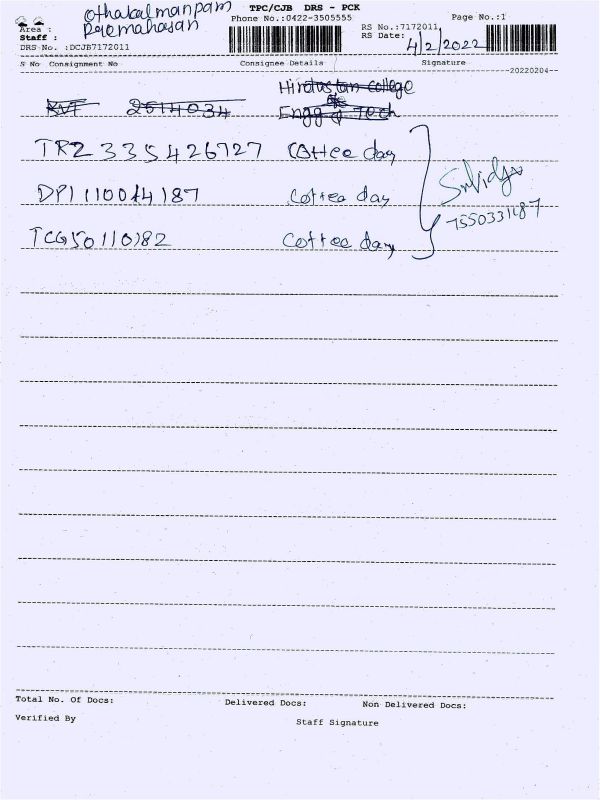 TPC/CJB DRS - PCK
Othakalmanpam
Phone No.:0422-3505555
Page No.:1
Area :
Staff :
RS No.:7172011
RS Date: 4/2/2022
DRS No. :DCJB7172011
S No Consignment No Consignee Details Signature
20220204
Hindustan college
2614034 Engg & Tech
TRZ 335426727 Coffee day
DPI110014187 Coffee day
7550331187
TCG50110182 Coffee day
Total No. Of Docs: Delivered Docs: Non Delivered Docs:
Verified By
Staff Signature